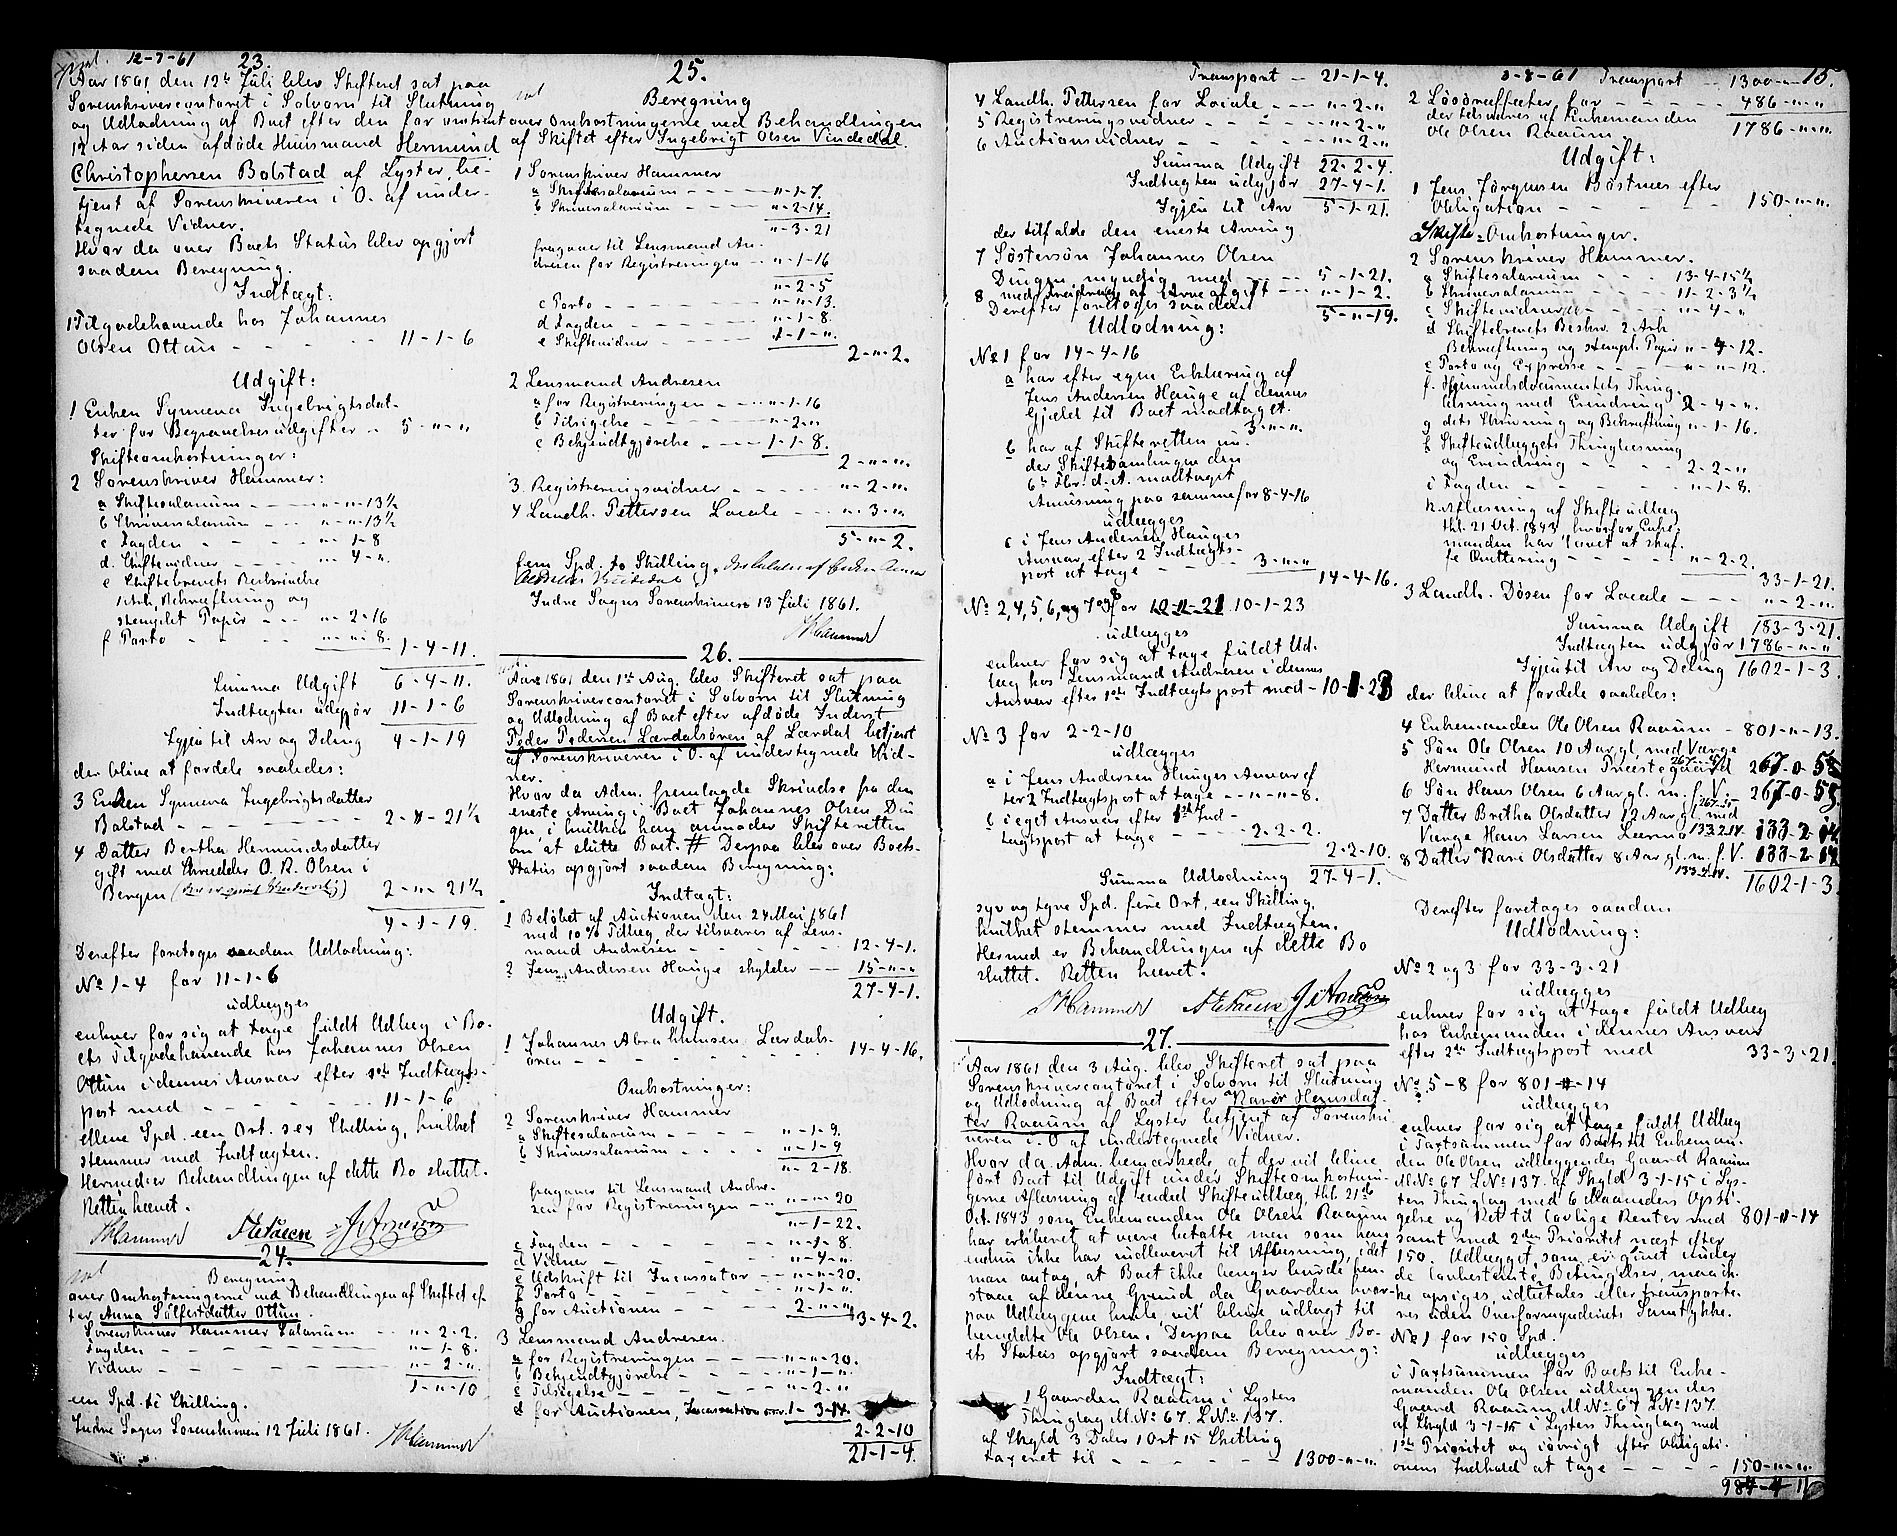 12-7-61 23.
Aar 1861, den 12te Juli blev Skifteret sat paa
Sorenskrivercontoret i Solvorn til Slutning
og Udlodning af Boet efter den for omtrent
12 Aar siden afdøde Huusmand Hermund
Christophersen Bolstad af Lyster, be-
tjent af Sorenskriveren i O. af under-
tegnede Vidner.
Hvor da over Boets Status blev opgjort
saadan Beregning.
Indtægt:
1 Tilgodehavende hos Johannes
Olsen Ottun - - - - 11-1-6
Udgift:
1 Enken Synneva Ingebrigtsdat-
ter for Begravelsesudgifter - 5-"-"
Skifteomkostninger:
2 Sorenskriver Hammer:
a Skiftesalarium - - - "-"-13½
b Skriversalarium - - "-"-13½
c Fagden - - - - "-1-8
d. Skiftevidner - - - "-4-".
e Skiftebrevets Beskrivelse
1 Ark, Bekræftning og
stemplet Papir - - - "-2-16
f Porto - - - - "-"-8.
1-4-11.
Summa Udgift 6-4-11.
Indtægten udgjør 11-1-6
Igjen til Arv og Deling 4-1-19
der blive at fordele saaledes:
3 Enken Synneva Ingebrigtsdatter
Bolstad - - - - - - - 2-"-21½
4 Datter Bertha Hermundsdatter
gift med Skrædder O. R. Olsen i
Bergen 2-"-21½
4-1-19.
Derefter foretoges saadan Udlodning:
No 1-4 for 11-1-6
udlægges
enhver for sig at tage fuldt Udlæg i Bo-
ets Tilgodehavende hos Johannes Olsen
Ottun i dennes Ansvar efter 1ste Indtægts-
post med - - - - - - 11-1-6
elleve Spd. een Ort. sex Skilling, hvilket
stemmer med Indtægten.
Hermed er Behandlingen af dette Bo sluttet.
Retten hævet.
JHammer
24.
Beregning
over Omkostningerne ved Behandlingen af Skiftet ef-
ter Anna Sølfestdatter Ottun.
Sorenskriver Hammer Salarium - - "-2-2.
Fagden - - - - - - "-1-8.
Vidner - - - - - - "-2-".
1-"-10
een Spd. ti Skilling.
Indre Sogns Sorenskriveri 12 Juli 1861.
JHammer
25.
Beregning
over Omkostningerne ved Behandlingen
af Skiftet efter Ingebrigt Olsen Vindedal.
1 Sorenskriver Hammer
a Skiftesalarium - - - - "-1-7.
b Skriversalarium - - - - "-2-14.
"-3-21
fragaaer til Lensmand An-
dresen for Registreringen - - "-1-16
"-2-5
c Porto - - - - - - "-"-13.
d Fagden - - - - - - "-1-8.
e Skiftevidner - - - - 1-1-".
2-"-2.
2 Lensmand Andresen
a for Registreringen - - - "-1-16
b Tilsigelse - - - - - "-2-"
c Bekjendtgjørelse - - - 1-1-8.
2-"-".
3. Registreringsvidner - - - - - "-2-".
4 Landh. Pettersen Locale - - - "-3-"
5-"-2.
fem Spd. to Skilling.
Indre Sogns Sorenskriveri 13 Juli 1861.
JHammer
26.
Aar 1861 den 1ste Aug. blev Skifteret sat paa
Sorenskrivercontoret i Solvorn til Slutning
og Udlodning af Boet efter afdøde Inderst
Peder Pedersen Lærdalsøren af Lærdal betjent
af Sorenskriveren i O. af undertegnede Vid-
ner.
Hvor da Adm. fremlagde Skrivelse fra den
eneste Arving i Boet Johannes Olsen Dun
gen, i hvilken han anmoder Skifteretten
om at slutte Boet. # Derpaa blev over Boets
Status opgjort saadan Beregning:
Indtægt:
1 Beløbet af Auctionen den 24 Mai 1861
med 10% Tillæg, der tilsvares af Lens-
mand Andresen - - - - - - 12-4-1.
2 Jens Andersen Hauge skylder - - 15-"-"
27-4-1.
Udgift.
1 Johannes Abrahamsen Lærdals-
øren - - - - - - - - 14-4-16.
Omkostninger:
2 Sorenskriver Hammer
a Skiftesalarium - - - - - "-1-9.
b Skriversalarium - - - - "-1-9
"-2-18.
fragaaer til Lensmand Andre-
sen for Registreringen - - "-"-20
"-1-22.
c Fagden - - - - - - "-1-8.
d Vidner - - - - - - "-4-".
e Udskrift til Incassator - - "-"-20.
f Porto - - - - - - "-1-".
g for Auctionen - - - - 2-"-"
3-4-2.
3 Lensmand Andresen.
a for Registreringen - - - - "-"-20.
b Bekjendtgjørelse - - - - "-1-".
c Tilsigelse - - - - - - "-2-"
d for Auctionen, Incassation ov. 1-3-14
2-2-10
21-1-4.
Transport - - 21-1-4.
4 Landh. Pettersen for Locale - - - "-2-"
5 Registreringsvidner - - - - - "-2-"
6 Auctionsvidner - - - - - - "-2-"
Summa Udgift 22-2-4.
Indtægten udgjør 27-4-1.
Igjen til Arv 5-1-21.
der tilfalde den eneste Arving
7 Søstersøn Johannes Olsen
Dungen myndig med - - - - 5-1-21.
8 med Fradrag af Arveafgift - - - "-1-2.
5-"-19.
Derefter foretoges saadan
Udlodning:
No 1 for 14-4-16
a har efter egen Erklæring af
Jens Andersen Hauge af dennes
Gjæld til Boet modtaget. 3-"-"
b har af Skifteretten un-
der Skiftesamlingen den
6te Fbr. d. A. modtaget
Anvisning paa samme for 8-4-16
udlægges
c i Jens Andersen Hauges
Ansvar efter 2 Indtægts-
post at tage - - - - - 3-"-"
14-4-16.
No 2, 4, 5, 6, og 7 og 8 for 10-1-23
udlægges
enhver for sig at tage fuldt Ud-
læg hos Lensmand Andresen i dennes
Ansvar efter 1ste Indtægtspost med - 10-1-23
No 3 for 2-2-10
udlægges
a i Jens Andersen Hauges Ansvar ef-
ter 2 Indtægtspost at tage - - "-"-8.
b i eget Ansvar efter 1ste Ind-
tægtspost at tage - - - - 2-2-2.
2-2-10.
Summa Udlodning 27-4-1.
syv og tyve Spd. fire Ort, een Skilling,
hvilket stemmer med Indtægten.
Hermed er Behandlingen af dette Bo
sluttet. Retten hævet.
JHammer
27.
Aar 1861 den 3 Aug. blev Skifteret sat paa
Sorenskrivercontoret i Solvorn til Slutning
og Udlodning af Boet efter Kari Hansdat-
ter Raaum af Lyster betjent af Sorenskri-
veren i O. af undertegnede Vidner.
Hvor da Adm. bemærkede, at der vil blive
ført Boet til Udgift under Skifteomkostnin-
gerne Aflæsning af endel Skifteudlæg, thl. 21de
Oct. 1843 som Enkemanden Ole Olsen Raaum
har erklæret at være betalte men som han
endnu ikke har indleveret til Aflæsning, idet
man antog, at Boet ikke længer burde hen-
staae af denne Grund da Gaarden hvor-
paa Udlæggene hvile, vil blive udlagt til
bemeldte Ole Olsen. Derpaa blev over Bo-
ets Status opgjort saadan Beregning:
Indtægt:
1 Gaarden Raaum i Lysters
Thinglag M.No 67. L.No 137.
af Skyld 3 Daler 1 Ort 15 Skilling
taxeret til - - - - - - - 1300-"-".
3-8-61 Transport - - 1300-"-" 15.
2 Løsøreeffecter for - - - - - 486-"-"
der tilsvares af Enkemanden
Ole Olsen Raaum. 1786-"-".
Udgift:
1 Jens Jørgensen Bostnæs efter
Obligation - - - - - - - 150-"-".
Skifte-Omkostninger.
2 Sorenskriver Hammer.
a Skiftesalarium - - - 13-4-15½
b Skriversalarium - - - 11-2-3½
c Skiftevidner - - - - "-4-"
d Skiftebrevets Beskriv. 2 Ark
Bekræftning og stempl. Papir "-4-12.
e Porto og Expresse - - - "-"-12.
f. Hjemmelsdocumentets Thing-
læsning med Erindring 2-4-".
g dets Skrivning og Bekræftning "-1-16.
h Skifteudlæggets Thinglæsning
og Erindring - - - - - 2-2-"
i Fagden - - - - - - "-1-8.
k Aflæsning af Skifteudlæg
thl. 21 Oct. 1843 hvorfor Enke-
manden har lovet at skaf-
fe Qvittering - - - - - "-2-2.
33-1-21.
3 Landh. Døsen for Locale - - - "-2-".
Summa Udgift 183-3-21.
Indtægten udgjør 1786-"-"
Igjen til Arv og Deling 1602-1-3.
der blive at fordele saaledes:
4 Enkemanden Ole Olsen Raaum - 801-"-13.
5 Søn Ole Olsen 10 Aar gl. med Værge
Hermund Hansen Præstegaard 267-0-5
6 Søn Hans Olsen 6 Aar gl. m. f. V. 267-0-5
7 Datter Britha Olsdatter 12 Aar gl. med
Værge Hans Larsen 133.2.14. 133-2-14
8 Datter Kari Olsdatter 8 Aar gl. m. f. V. 133-2-14
1602-1-3.
Derefter foretoges saadan
Udlodning:
No 2 og 3 for 33-3-21
udlægges
enhver for sig at tage fuldt Udlæg
hos Enkemanden i dennes Ansvar
efter 2den Indtægtspost med 33-3-21.
No 5-8 for 801-"-14
udlægges
enhver for sig at tage fuldt Udlæg
i Taxtsummen for Boets til Enkeman-
den Ole Olsen udlæggendes Gaard Raaum
M.No 67 L.No 137. af Skyld 3-1-15 i Lys-
ters Thinglag med 6 Maaneders Opsi-
gelse og Ret til lovlige Renter med 801-"-14
samt med 2den Prioritet næst efter
150. Udlægget, som er givet under
de lovbestemte Betingelser, maa ik-
ke opsiges, udbetales eller transporte-
res uden Overformynderiets Samtykke.
No 1 for 150 Spd.
udlægges
i Taxtsummen for Boets til Enke-
manden Ole Olsen udlæggendes
Gaard Raaum M.No 67 L.No 137.
af Skyld 3-1-15 i Lysters Thinglag med
1ste Prioritet og iøvrigt efter Obligati-
onens Indhold at tage - - - - 150-"-"
984-4-11